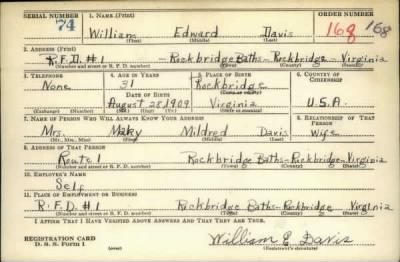 SERIAL NUMBER 1. NAME (Print) ORDER NUMBER
74 William Edward Davis 168 168
(First) (Middle) (Last)
2. ADDRESS (Print)
R.F.D. #1 - Rockbridge Baths - Rockbridge - Virginia
(Number and street or R. F. D. number) (Town) (County) (State)
3. TELEPHONE 4. AGE IN YEARS 5. PLACE OF BIRTH 6. COUNTRY OF CITIZENSHIP
None 31 Rockbridge
DATE OF BIRTH (Town or county)
August 28 1909 Virginia U.S.A.
(Exchange) (Number) (Mo.) (Day) (Yr.) (State or country)
7. NAME OF PERSON WHO WILL ALWAYS KNOW YOUR ADDRESS 8. RELATIONSHIP OF THAT PERSON
Mrs. Mary Mildred Davis Wife
(Mr., Mrs., Miss) (First) (Middle) (Last)
9. ADDRESS OF THAT PERSON
Route 1 Rockbridge Baths - Rockbridge - Virginia
(Number and street or R. F. D. number) (Town) (County) (State)
10. EMPLOYER'S NAME
Self
11. PLACE OF EMPLOYMENT OR BUSINESS
R.F.D. #1 Rockbridge Baths - Rockbridge Virginia
(Number and street or R. F. D. number) (Town) (County) (State)
I AFFIRM THAT I HAVE VERIFIED ABOVE ANSWERS AND THAT THEY ARE TRUE.
REGISTRATION CARD
D. S. S. Form 1 William E. Davis
(over) (Registrant's signature)